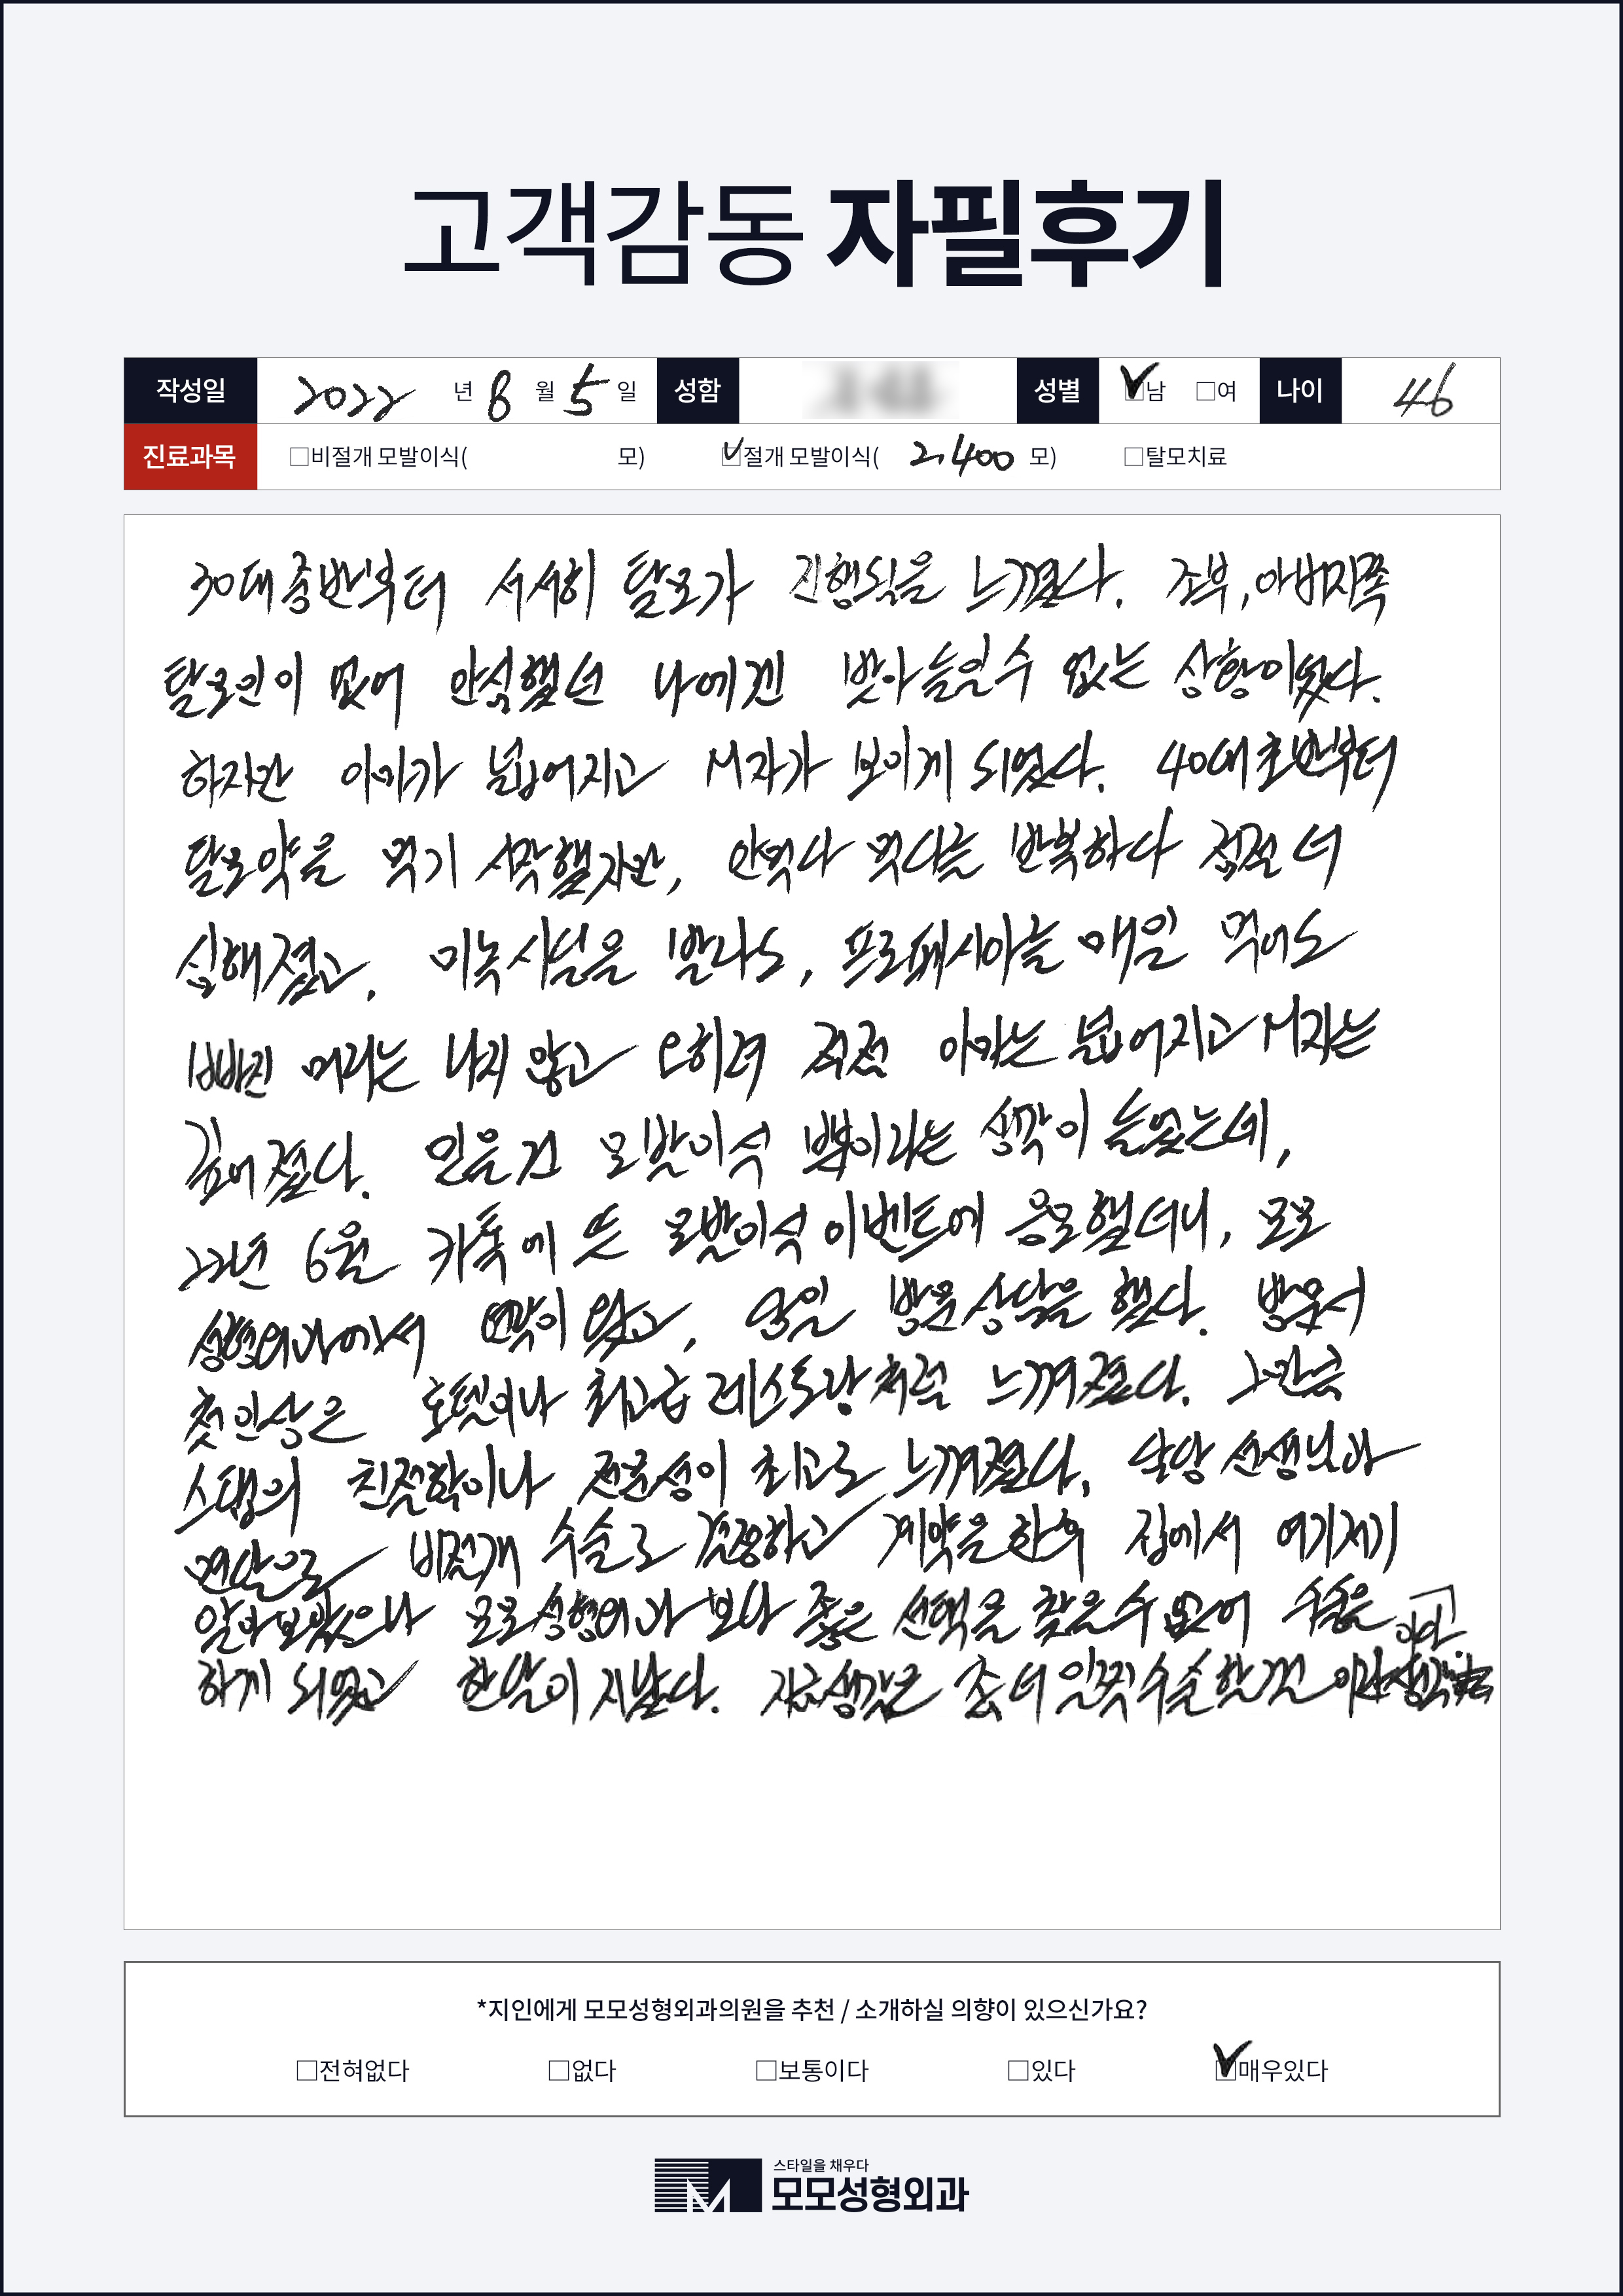 고객감동 자필후기
작성일 2022 년 8 월 5 일 성함 성별 ☑남 □여 나이 46
진료과목 □비절개 모발이식( 모) ☑절개 모발이식( 2,400 모) □탈모치료
30대 중반부터 서서히 탈모가 진행됨을 느꼈다. 조부, 아버지쪽
탈모인이 없어 안심했던 나에겐 받아들일수 없는 상황이었다.
하지만 이마가 넓어지고 M자가 보이게 되었다. 40대 초반부터
탈모약을 먹기 시작했지만, 안먹다 먹다를 반복하다 점점 더
심해졌고, 미녹시딜을 발라도, 프로페시아를 매일 먹어도
빠진 머리는 나지 않고 오히려 점점 이마는 넓어지고 M자는
깊어졌다. 믿을건 모발이식 뿐이라는 생각이 들었는데,
22년 6월 카톡에 뜬 모발이식 이벤트에 응모했더니, 모모
성형외과에서 연락이 왔고, 당일 방문상담을 했다. 방문시
첫인상은 호텔이나 최고급 레스토랑처럼 느껴졌다. 그만큼
스탭의 친절함이나 전문성이 최고로 느껴졌다. 담당 선생님과
면담으로 비절개 수술로 결정하고 계약을 한후 집에서 여기저기
알아보았으나 모모성형외과 보다 좋은 선택을 찾을수 없어 수술을
하게 되었고 한달이 지났다. 지금생각은 좀 더 일찍 수술할껄 이란 생각
*지인에게 모모성형외과의원을 추천 / 소개하실 의향이 있으신가요?
□전혀없다 □없다 □보통이다 □있다 ☑매우있다
스타일을 채우다
모모성형외과